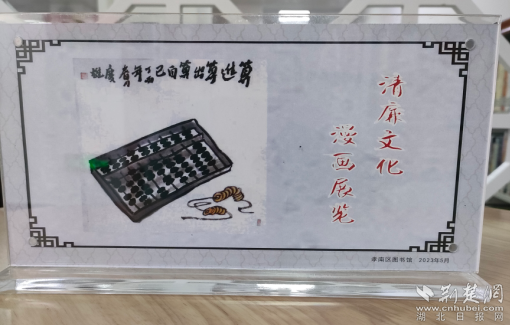 算進算出算自己
清廉文化
漫画展览
孝南区图书馆 2023年8月
荆楚網
www.cnhubei.com
湖北日报网